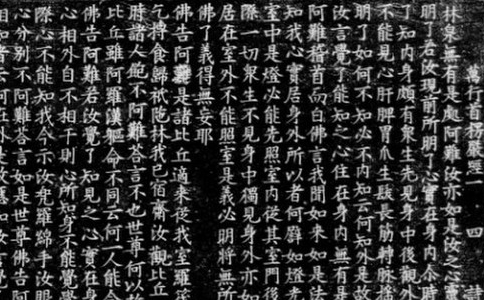 萬行首楞嚴經一 四
林泉無有是處阿難汝亦如是汝之心
明了若汝現前所明了心實在身内尒時
了知内身頗有衆生先見身中後觀外
不能見心肝脾胃爪生髮長筋轉脉搖
明了如何不知必不内知云何知外是故
汝言覺了能知之心住在身内無有是
阿難稽首而白佛言我聞如來如是法
知我心實居身外所以者何辟如燈光
室中是燈必能先照室内從其室門
際一切衆生不見身中獨見身外亦如
居在室外不能照室是義必明將無所
佛了義得無妄耶
佛告阿難是諸比丘適來從我室羅
乞摶食歸祇陁林我已宿齋汝觀比丘
時諸人飽不阿難答言不也世尊何以故
比丘雖阿羅漢軀命不同云何一人能令
佛告阿難若汝覺了知見之心實在身
心相外自不相干則心所知身不能覺
際心不能知我今示汝兜羅綿手汝眼
心分别不阿難答言如是世尊佛告阿